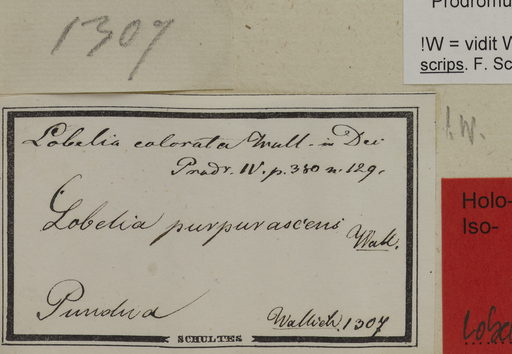 1307
Prodromu
!W = vidit W
scrips. F. Sc
Lobelia colorata Wall. in Dec
Prodr. IV. p. 380 n. 129.
!W.
Lobelia purpurascens
Wall.
Holo-
Iso-
Pundua
Wallich. 1307
SCHULTES